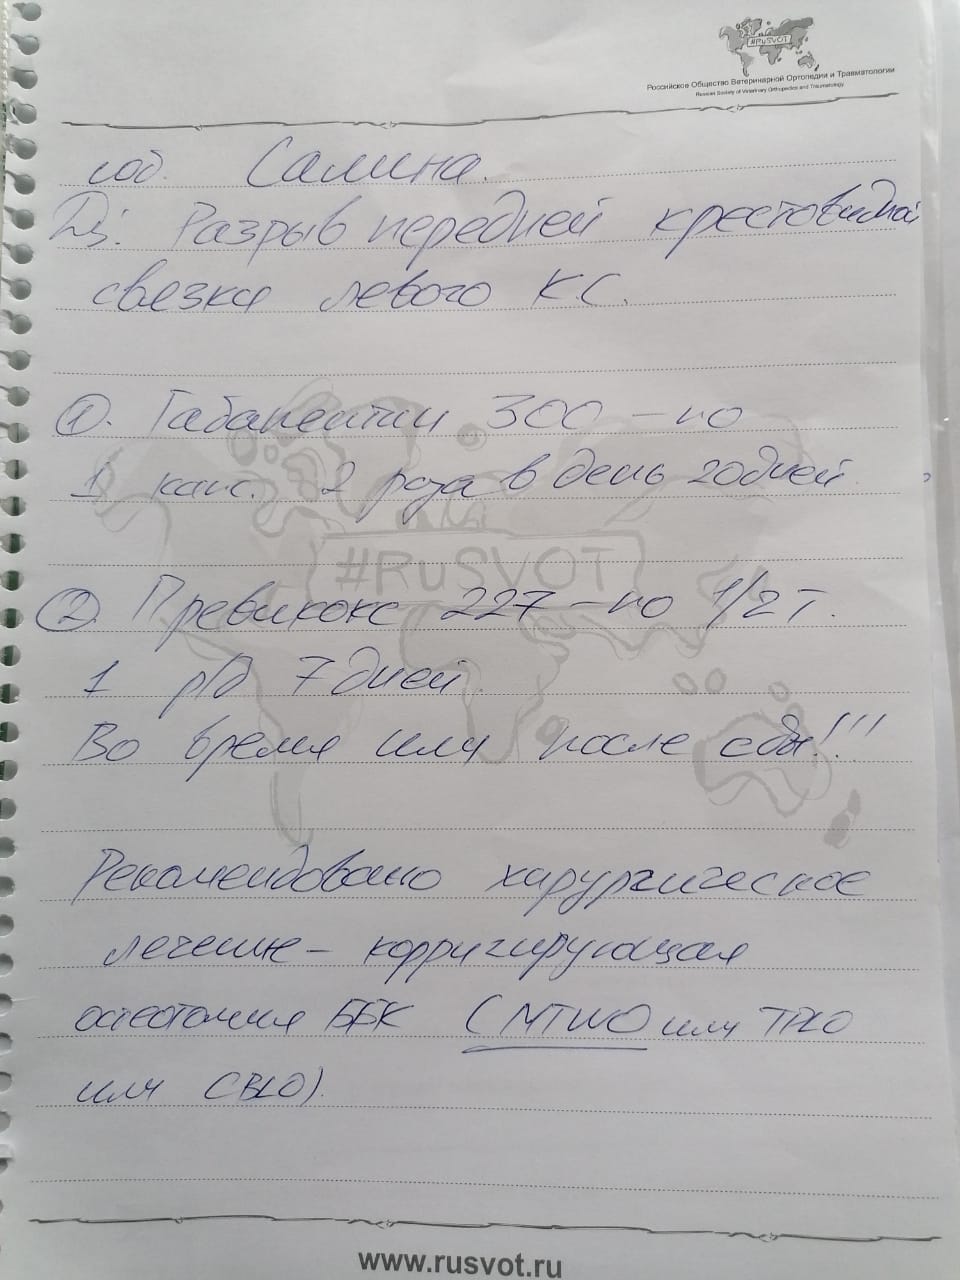 #RUSVOT
Российское Общество Ветеринарной Ортопедии и Травматологии
Russian Society of Veterinary Orthopedics and Traumatology
соб. Салина.
Ds: Разрыв передней крестовидной
связки левого К.С.
①. Габапентин 300 – по
1 капс. 2 раза в день 20 дней
#RUSVOT
②. Превикокс 227 – по 1/2 т.
1 р/д 7 дней.
Во время или после еды!!!
Рекомендовано хирургическое
лечение – корригирующая
остеотомия ББК (MTWO или TPLO
или CBLO).
www.rusvot.ru